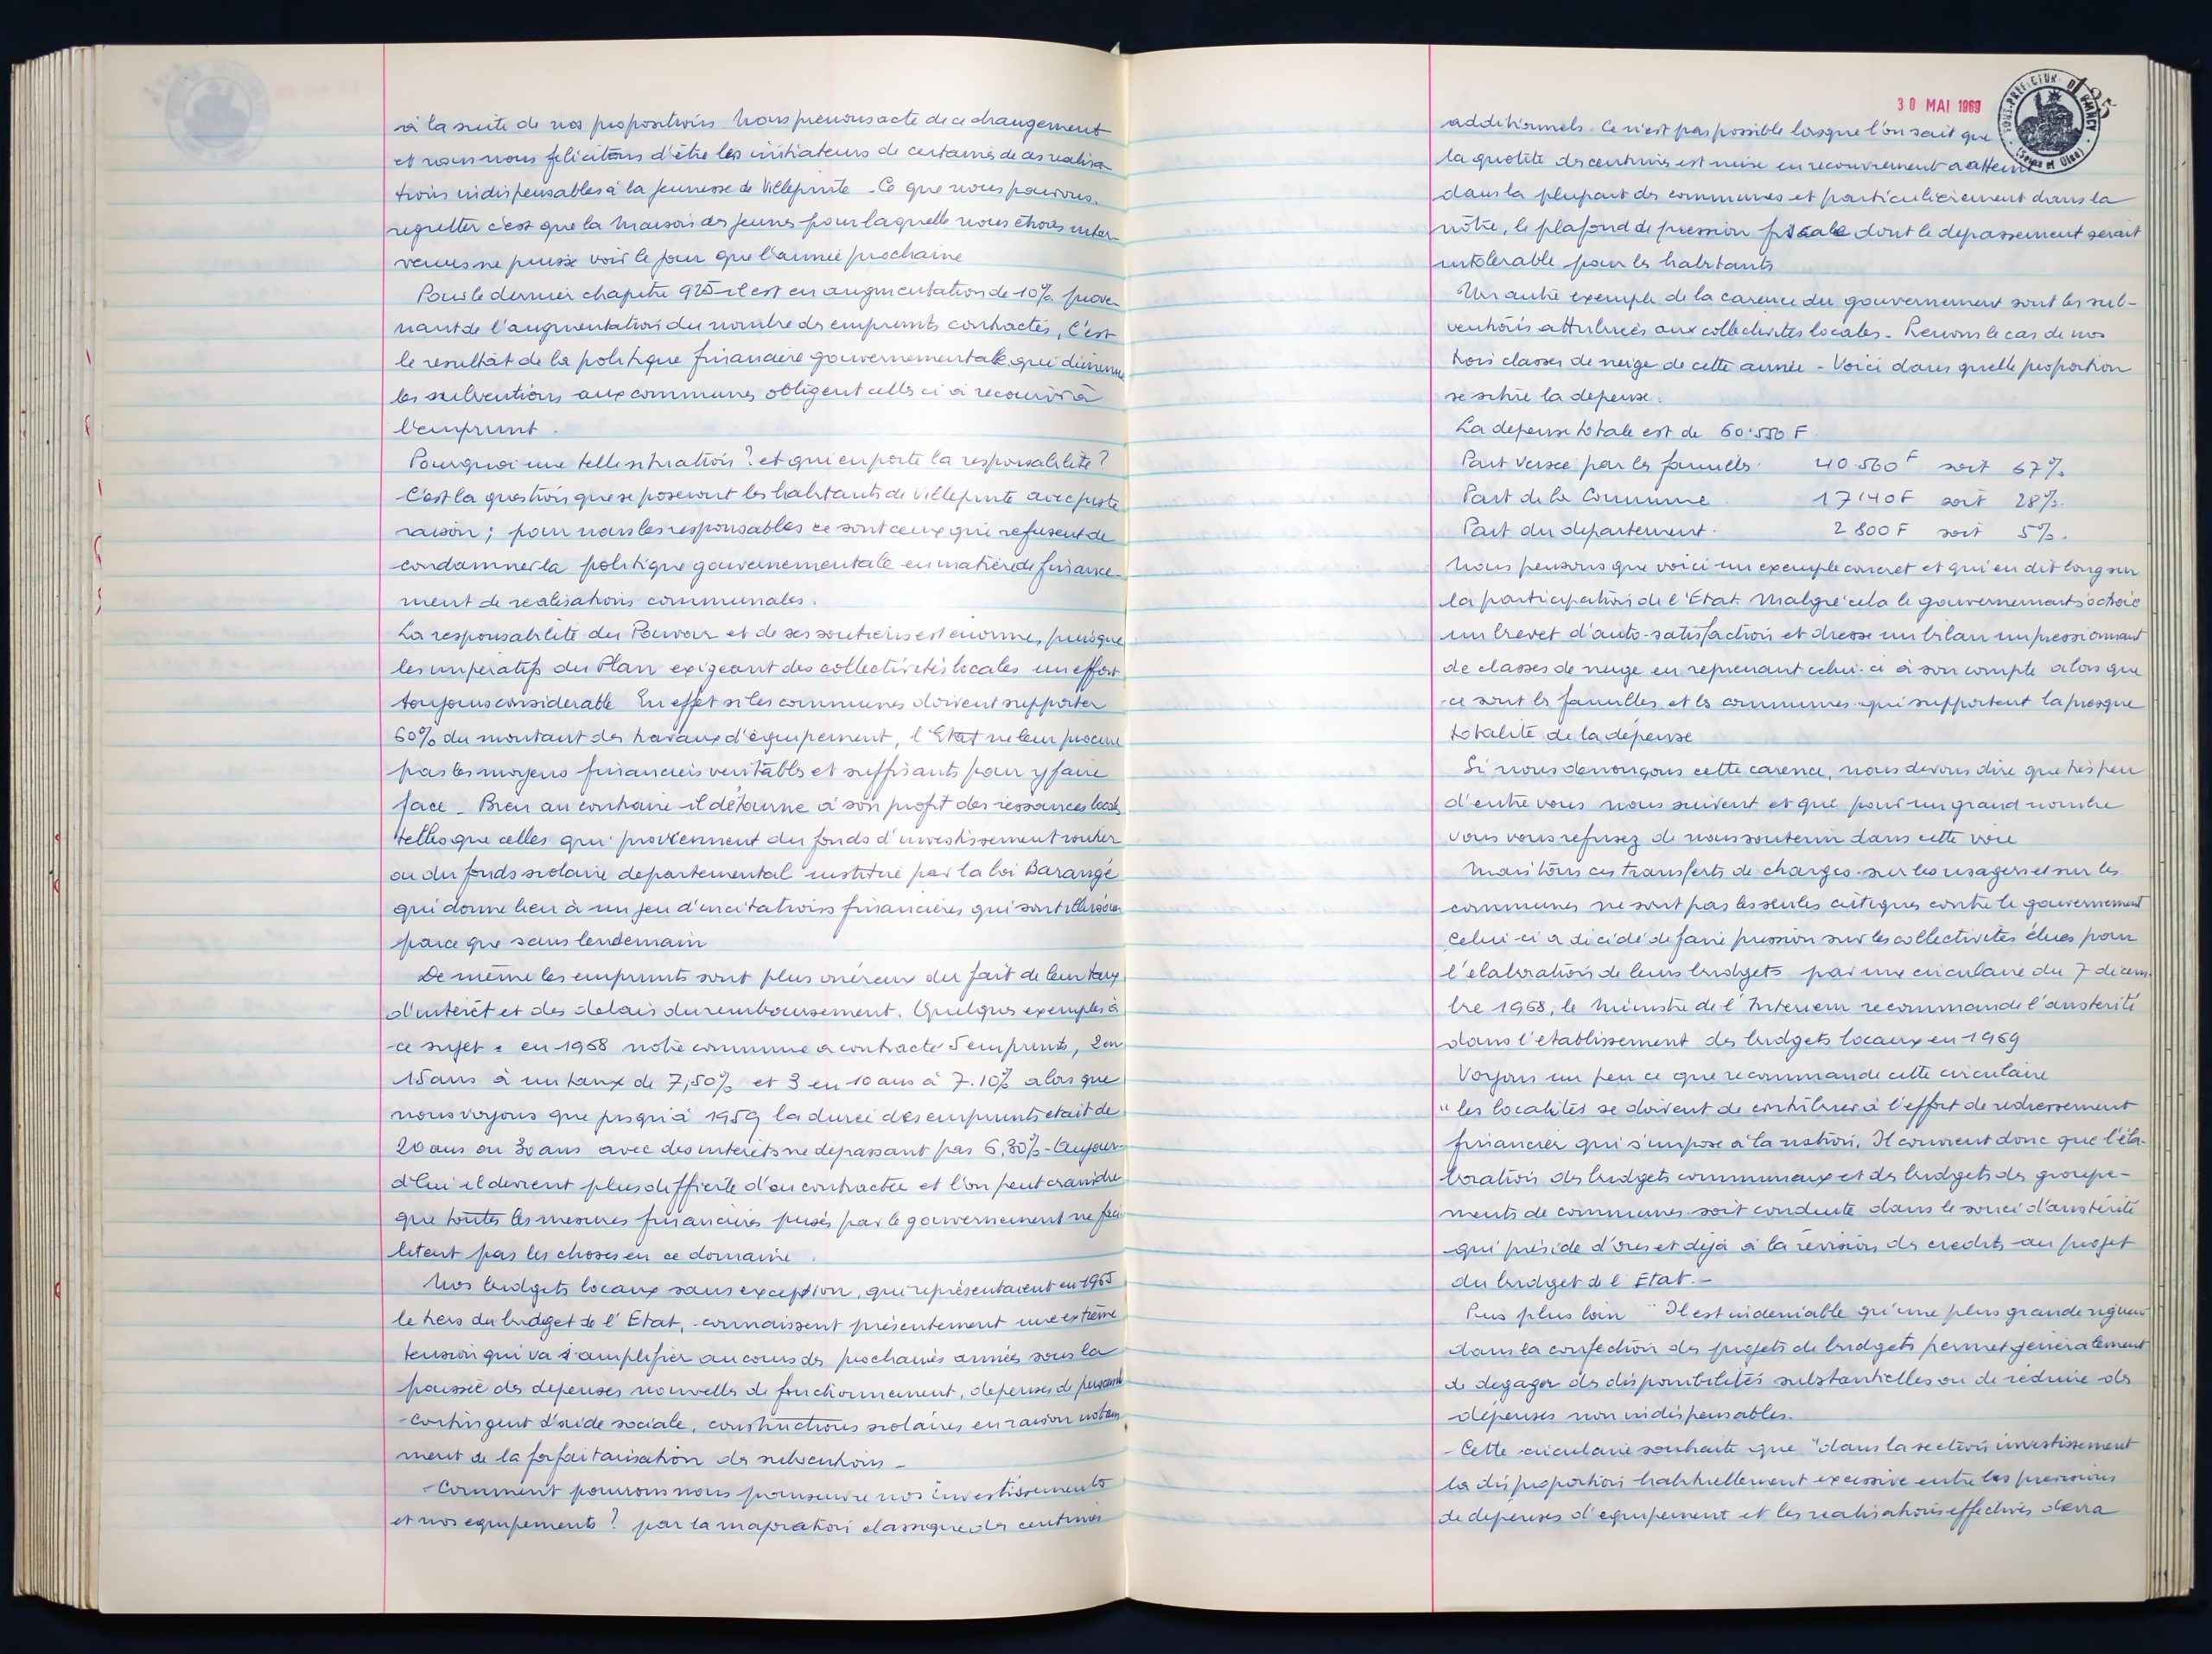 à la suite de nos propositions Nous prenons acte de ce changement
et nous nous félicitons d'être les initiateurs de certaines de ces réalisa
tions indispensables à la jeunesse de Villepinte - Ce que nous pouvons
regretter c'est que la maison des jeunes pour laquelle nous étions inter-
venus ne puisse voir le jour que l'année prochaine
Pour le dernier chapitre 925 il est en augmentation de 10% prove-
nant de l'augmentation du nombre des emprunts contractés, C'est
le resultat de la politique financière gouvernementale, qui diminue
les subventions aux communes obligent celles ci à recourir à
l'emprunt.
Pourquoi une telle situation ? et qui en porte la responsabilité ?
C'est la question que se poseront les habitants de Villepinte avec juste
raison ; pour nous les responsables ce sont ceux qui refusent de
condamner la politique gouvernementale en matière de finance-
ment de realisations communales.
La responsabilité du Pouvoir et de ses soutiens est énorme, puisque
les imperatifs du Plan exigeant des collectivités locales un effort
toujours considerable En effet si les communes doivent supporter
60% du montant des travaux d'équipement, l'Etat ne leur procure
pas les moyens financiers veritables et suffisants pour y faire
face - Bien au contraire il détourne à son profit des ressources locales
telles que celles qui proviennent du fonds d'investissement routier
ou du fonds scolaire departemental institué par la loi Barangé
qui donne lieu à un jeu d'incitations financières qui sont illusoires
parce que sans lendemain
De même les emprunts sont plus onéreux du fait de leur taux
d'intérêt et des delais du remboursement. Quelques exemples à
ce sujet : en 1968 notre commune a contracté 5 emprunts, 2 en
15 ans à un taux de 7,50% et 3 en 10 ans à 7.10% alors que
nous voyons que jusqu'à 1959 la durée des emprunts etait de
20 ans ou 30 ans avec des interêts ne depassant pas 6,30% - Aujour-
d'hui il devient plus difficile d'en contracter et l'on peut craindre
que toutes les mesures financières prises par le gouvernement ne faci
litent pas les choses en ce domaine.
Nos budgets locaux sans exception, qui représentaient en 1965
le tiers du budget de l'Etat, connaissent présentement une extrême
tension qui va s'amplifier au cours des prochaines années sous la
poussée des depenses nouvelles de fonctionnement, depenses de personnel
- Contingent d'aide sociale, constructions scolaires en raison notam
ment de la forfaitarisation des subventions -
- Comment pourrons nous poursuivre nos investissements
et nos equipements ? par la majoration classique des centimes
30 MAI 1969
SOUS-PREFECTURE
(Seine et Oise)
additionnels - Ce n'est pas possible lorsque l'on sait que
la quotité des centimes est mise en recouvrement a atteint
dans la plupart des communes et particulièrement dans la
nôtre, le plafond de pression fiscale dont le depassement serait
intolerable pour les habitants
Un autre exemple de la carence du gouvernement sont les sub-
ventions attribuées aux collectivités locales - Prenons le cas de nos
trois classes de neige de cette année - Voici dans quelle proportion
se situe la depense :
La depense totale est de 60.550 F.
Part versée par les familles. 40.560 F soit 67%
Part de la Commune 17140 F soit 28%.
Part du departement. 2 800 F soit 5%.
Nous pensons que voici un exemple concret et qui en dit long sur
la participation de l'Etat. Malgré cela le gouvernement s'octroie
un brevet d'auto-satisfaction et dresse un bilan impressionnant
de classes de neige en reprenant celui-ci à son compte alors que
ce sont les familles et les communes qui supportent la presque
totalité de la dépense
Si nous denonçons cette carence, nous devons dire que très peu
d'entre vous nous suivent et que pour un grand nombre
vous vous refusez de nous soutenir dans cette voie
ces transferts de charges sur les usagers et sur les
communes ne sont pas les seules critiques contre le gouvernement
Celui-ci a décidé de faire pression sur les collectivités élues pour
l'elaboration de leurs budgets par une circulaire du 7 decem-
bre 1968, le Ministre de l'Interieur recommande l'austérité
dans l'etablissement des budgets locaux en 1969
Voyons un peu ce que recommande cette circulaire
"les localités se doivent de contribuer à l'effort de redressement
financier qui s'impose à la nation. Il convient donc que l'éla-
boration des budgets communaux et des budgets des groupe-
ments de communes soit conduite dans le souci d'austérité
qui préside d'ores et déjà à la révision des credits au projet
du budget de l'Etat. -
Puis plus loin "Il est indeniable qu'une plus grande rigueur
dans la confection des projets de budgets permet généralement
de degager des disponibilités substantielles ou de réduire des
dépenses non indispensables.
- Cette circulaire souhaite que "dans la section investissement
la disproportion habituellement excessive entre les previsions
de dépenses d'equipement et les realisations effectives devra